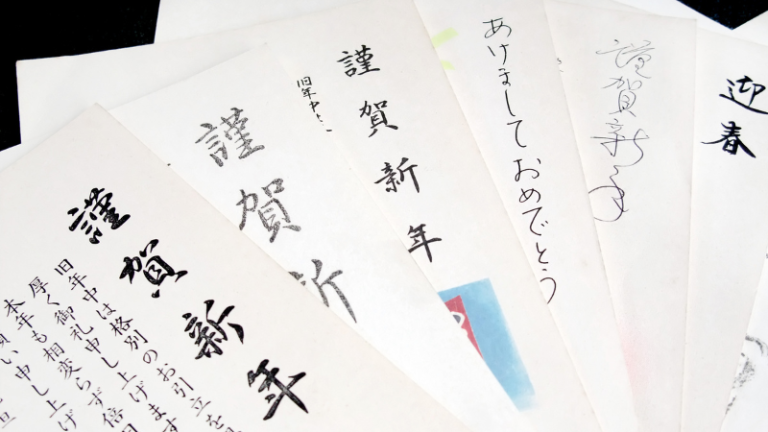 謹賀新年
旧年中は格別のお引立を
厚く御礼申し上げます
本年も相変らず倍
願い申し上げ
謹賀新
謹賀新年
旧年中は
あけましておめでとう
謹賀新年
迎春